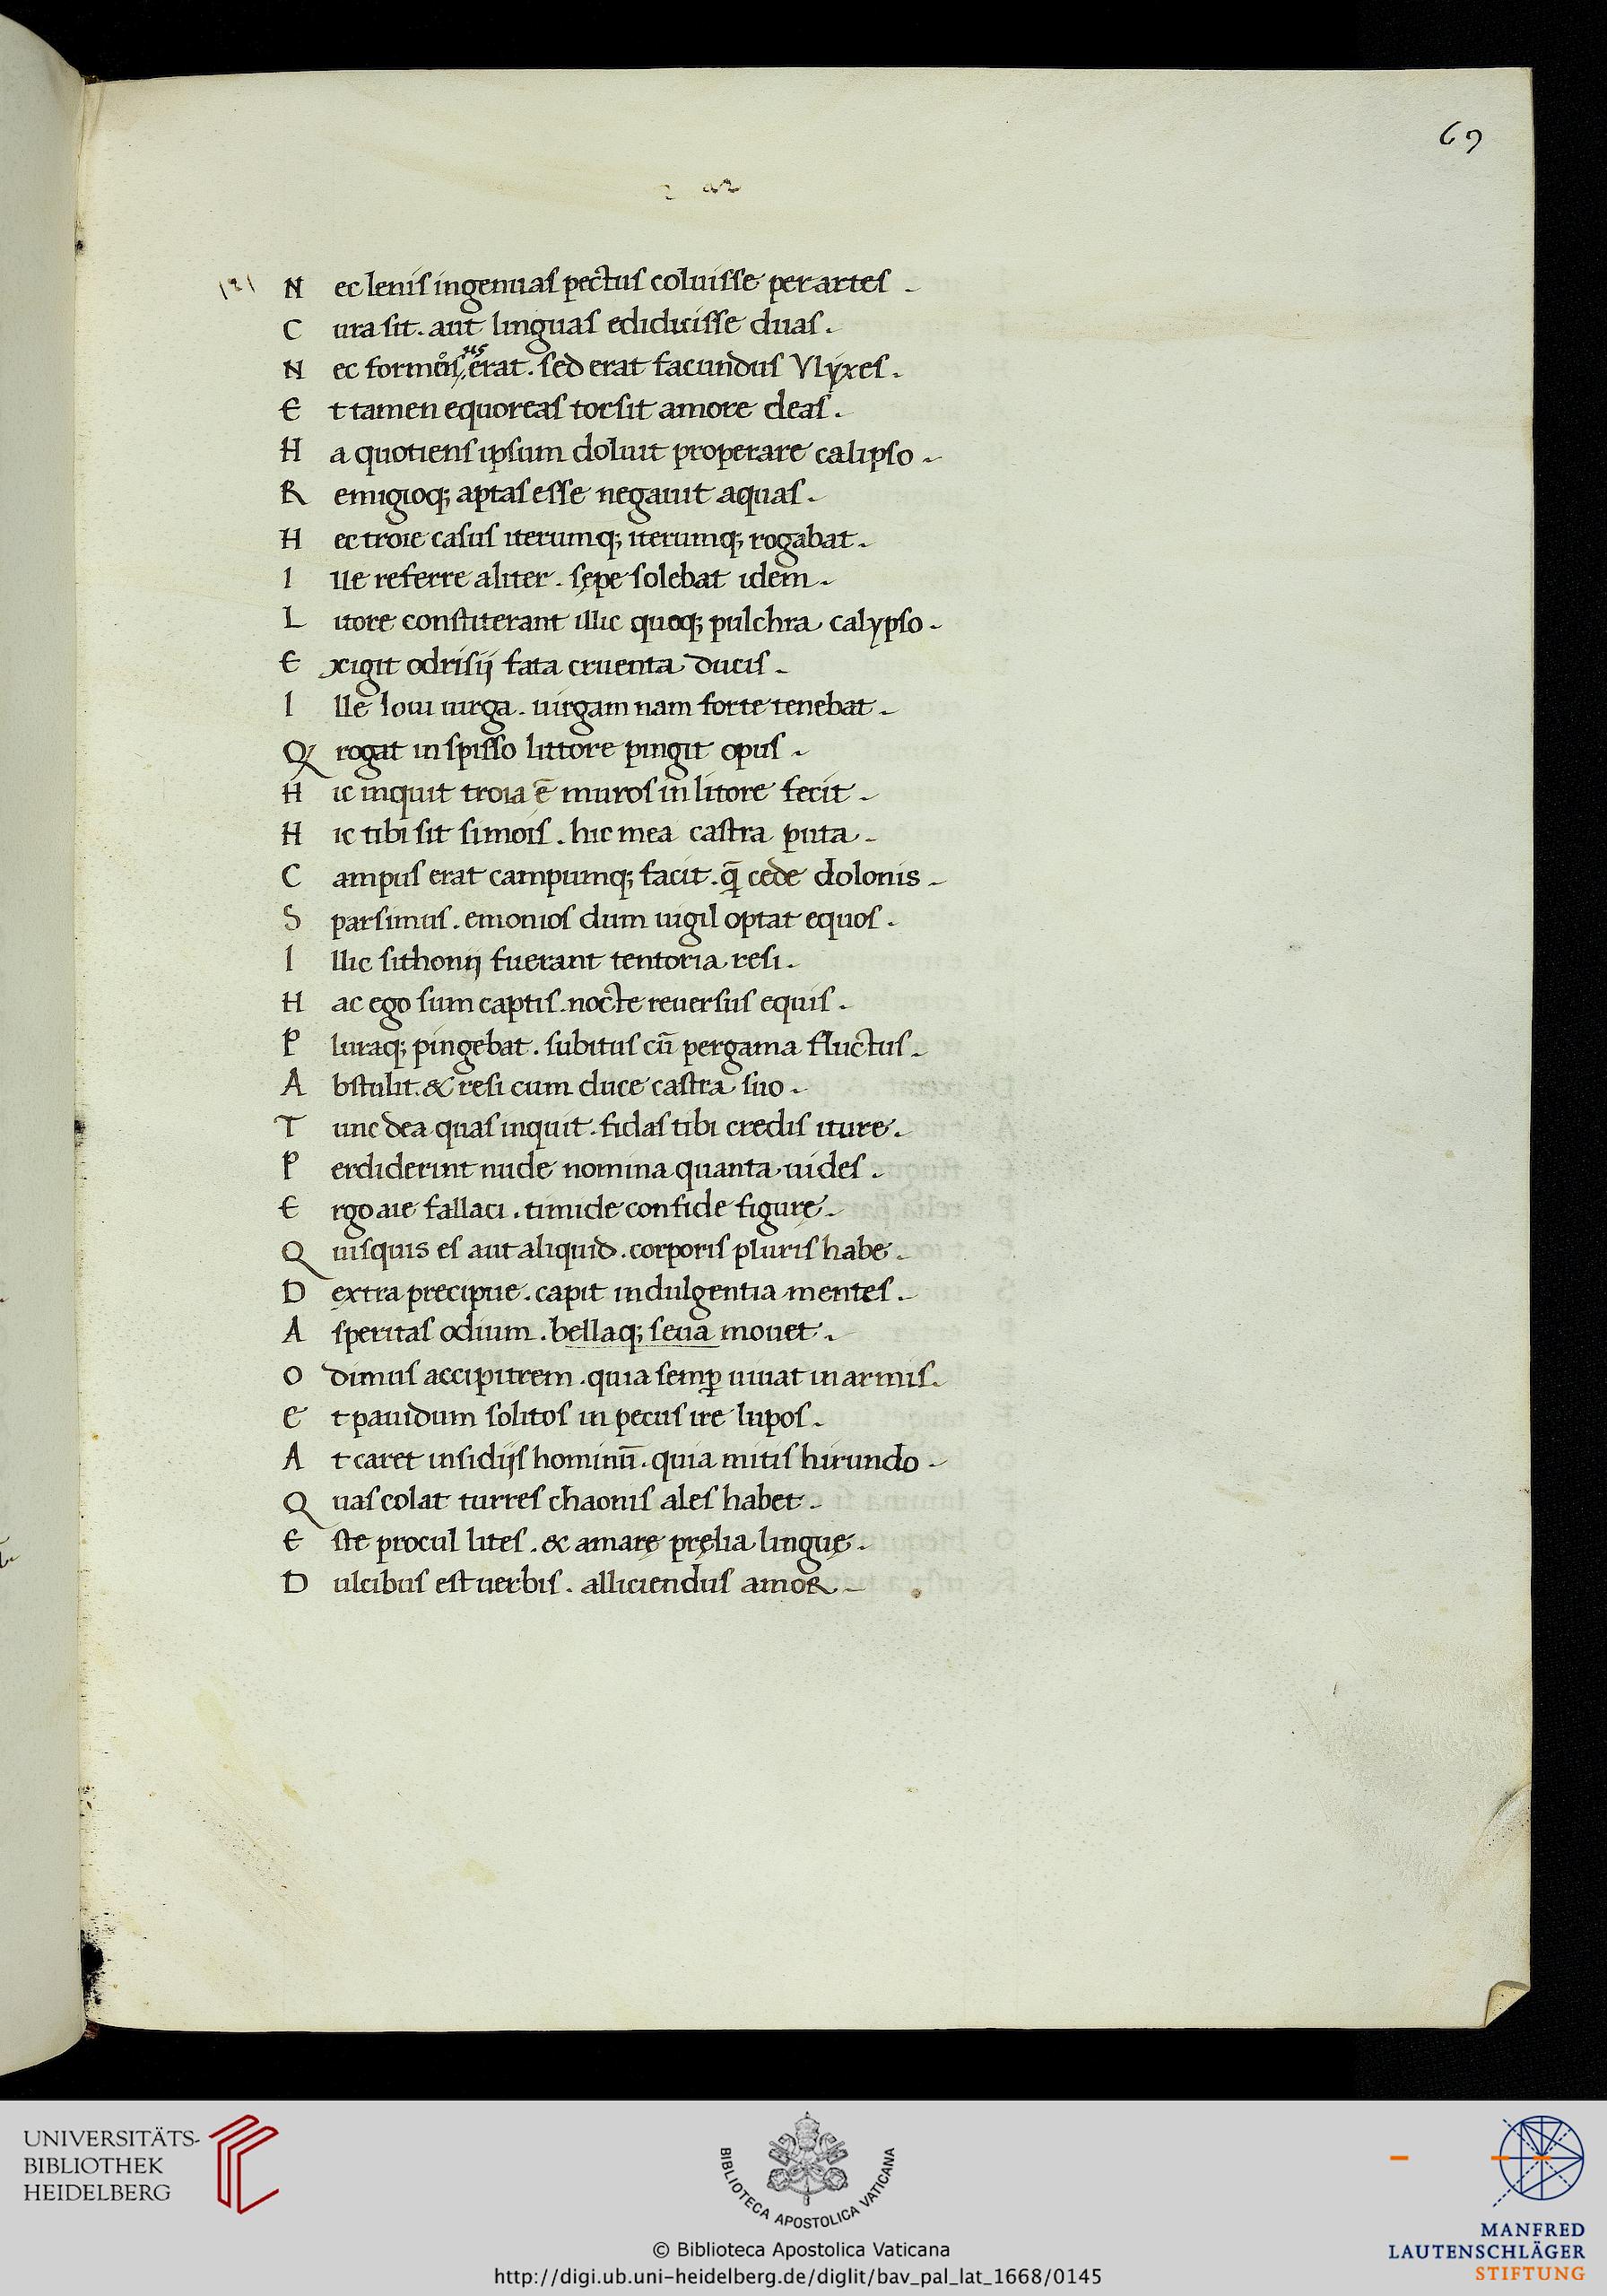 69
N ec lenis ingenuas pectus coluisse per artes .
C ura sit. aut linguas edidicisse duas.
N ec formosus erat. sed erat facundus Vlyxes.
E t tamen equoreas torsit amore deas.
H a quotiens ipsum doluit properare calipso.
R emigioq; aptas esse negauit aquas.
H ec troie casus iterumq; iterumq; rogabat.
I lle referre aliter. sępe solebat idem.
L itore constiterant illic quoq; pulchra calypso.
E xigit odrisij fata cruenta ducis.
I lle loui uirga. uirgam nam forte tenebat.
Q rogat in spisso littore pingit opus.
H ic inquit troia ē muros in litore fecit.
H ic tibi sit simois. hic mea castra puta.
C ampus erat campumq; facit. q̃ cede dolonis.
S parsimus. emonios dum uigil optat equos.
I llic sithonij fuerant tentoria resi.
H ac ego sum captis. nocte reuersus equis.
P luraq; pingebat. subitus cū pergama fluctus.
A bstulit. & resi cum duce castra suo.
T unc dea quas inquit. fidas tibi credis iture.
P erdiderint nude nomina quanta uides.
E rgo aie fallaci. timide confide figurę.
Q uisquis es aut aliquid. corporis pluris habe.
D extra precipue. capit indulgentia mentes.
A speritas odium. bellaq; seua mouet.
O dimus accipitrem. quia semꝑ uiuat in armis.
E t pauidum solitos in pecus ire lupos.
A t caret insidijs hominū. quia mitis hirundo.
Q uas colat turres chaonis ales habet.
E ste procul lites. & amarę pręlia linguę.
D ulcibus est uerbis. alliciendus amor.
UNIVERSITÄTS-
BIBLIOTHEK
HEIDELBERG
BIBLIOTECA APOSTOLICA VATICANA
MANFRED
LAUTENSCHLÄGER
STIFTUNG
© Biblioteca Apostolica Vaticana
http://digi.ub.uni-heidelberg.de/diglit/bav_pal_lat_1668/0145